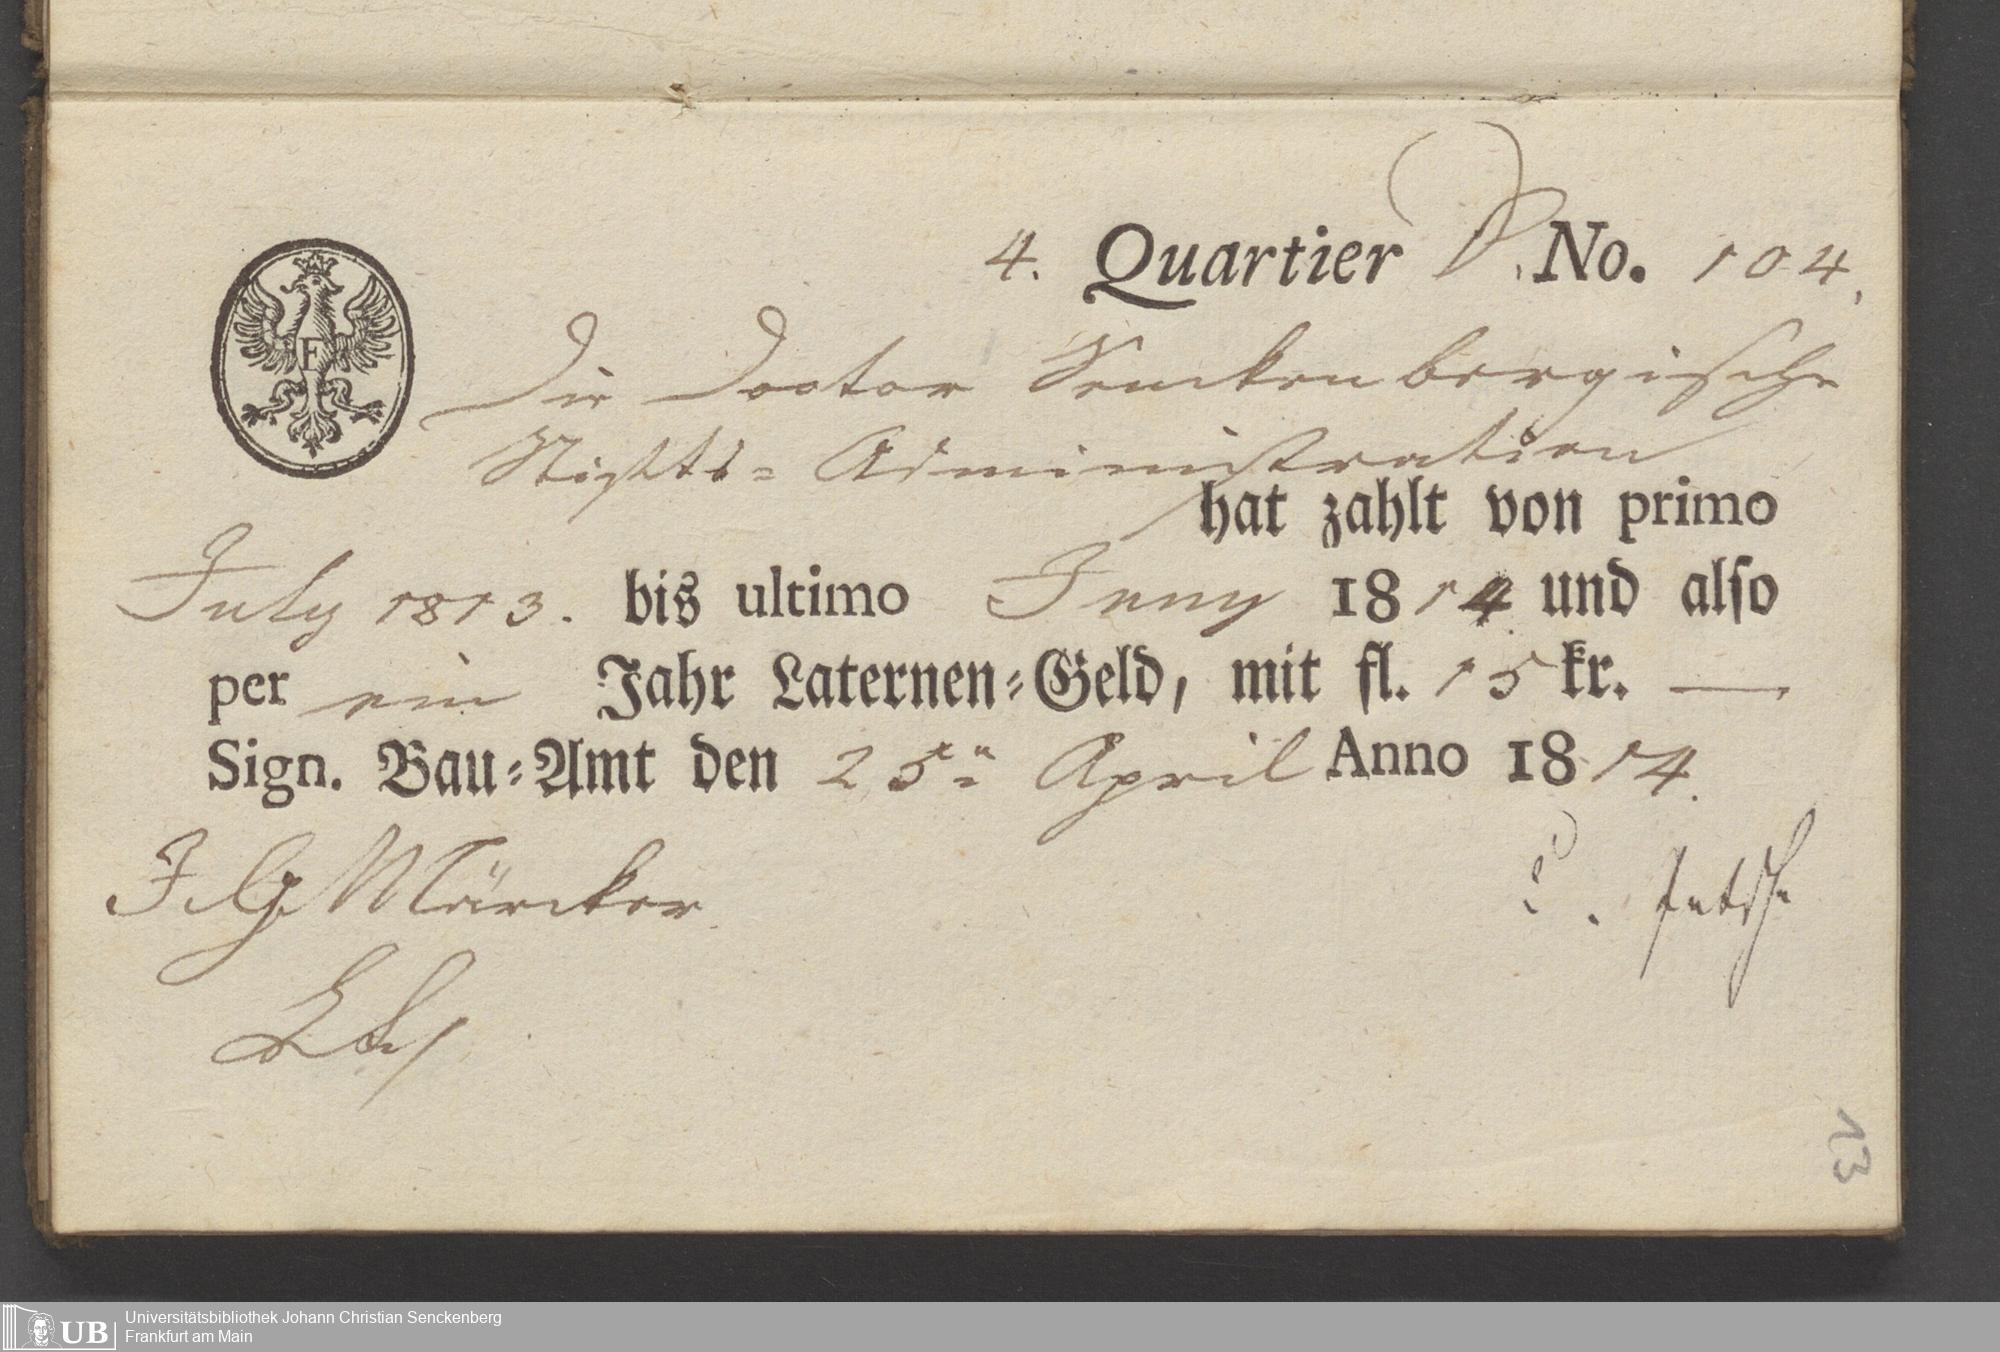 4. Quartier D. No. 104.
F
Die Doctor Senckenbergische
Stiftts= Administration
hat zahlt von primo
July 1813. bis ultimo Juny 1814 und also
per ein Jahr Laternen=Geld, mit fl. 15 kr. —
Sign. Bau=Amt den 25n April Anno 1814.
J G Märcker
13
UB Universitätsbibliothek Johann Christian Senckenberg
Frankfurt am Main